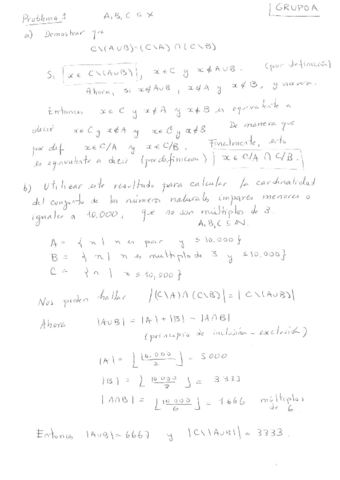 GRUPO A
Problema 1 A, B, C ⊆ X
a) Demostrar que
C\(A∪B) = (C\A) ∩ (C\B)
Si x∈ C\(A∪B), x∈C y x∉ A∪B. (por definición)
Ahora, si x∉A∪B, x∉A y x∉B, y viceversa.
Entonces x∈C y x∉A y x∉B es equivalente a
decir x∈C y x∉A y x∈C y x∉B De manera que
por def. x∈C/A y x∈C/B. Finalmente, esto
es equivalente a decir (por definición) x∈C/A ∩ C/B.
b) Utilizar este resultado para calcular la cardinalidad
del conjunto de los números naturales impares menores o
iguales a 10,000, que no son múltiplos de 3.
A, B, C ⊆ ℕ.
A = { n | n es par y ≤10,000}
B = { n | n es múltiplo de 3 y ≤10,000}
C = { n | n ≤ 10,000}
Nos piden hallar |(C\A)∩(C\B)| = |C\(A∪B)|
Ahora |A∪B| = |A| + |B| - |A∩B|
(principio de inclusión-exclusión)
|A| = ⌊10,000/2⌋ = 5000
|B| = ⌊10,000/3⌋ = 3333
|A∩B| = ⌊10,000/6⌋ = 1666 múltiplos
de 6
Entonces |A∪B| = 6667 y |C\(A∪B)| = 3333.